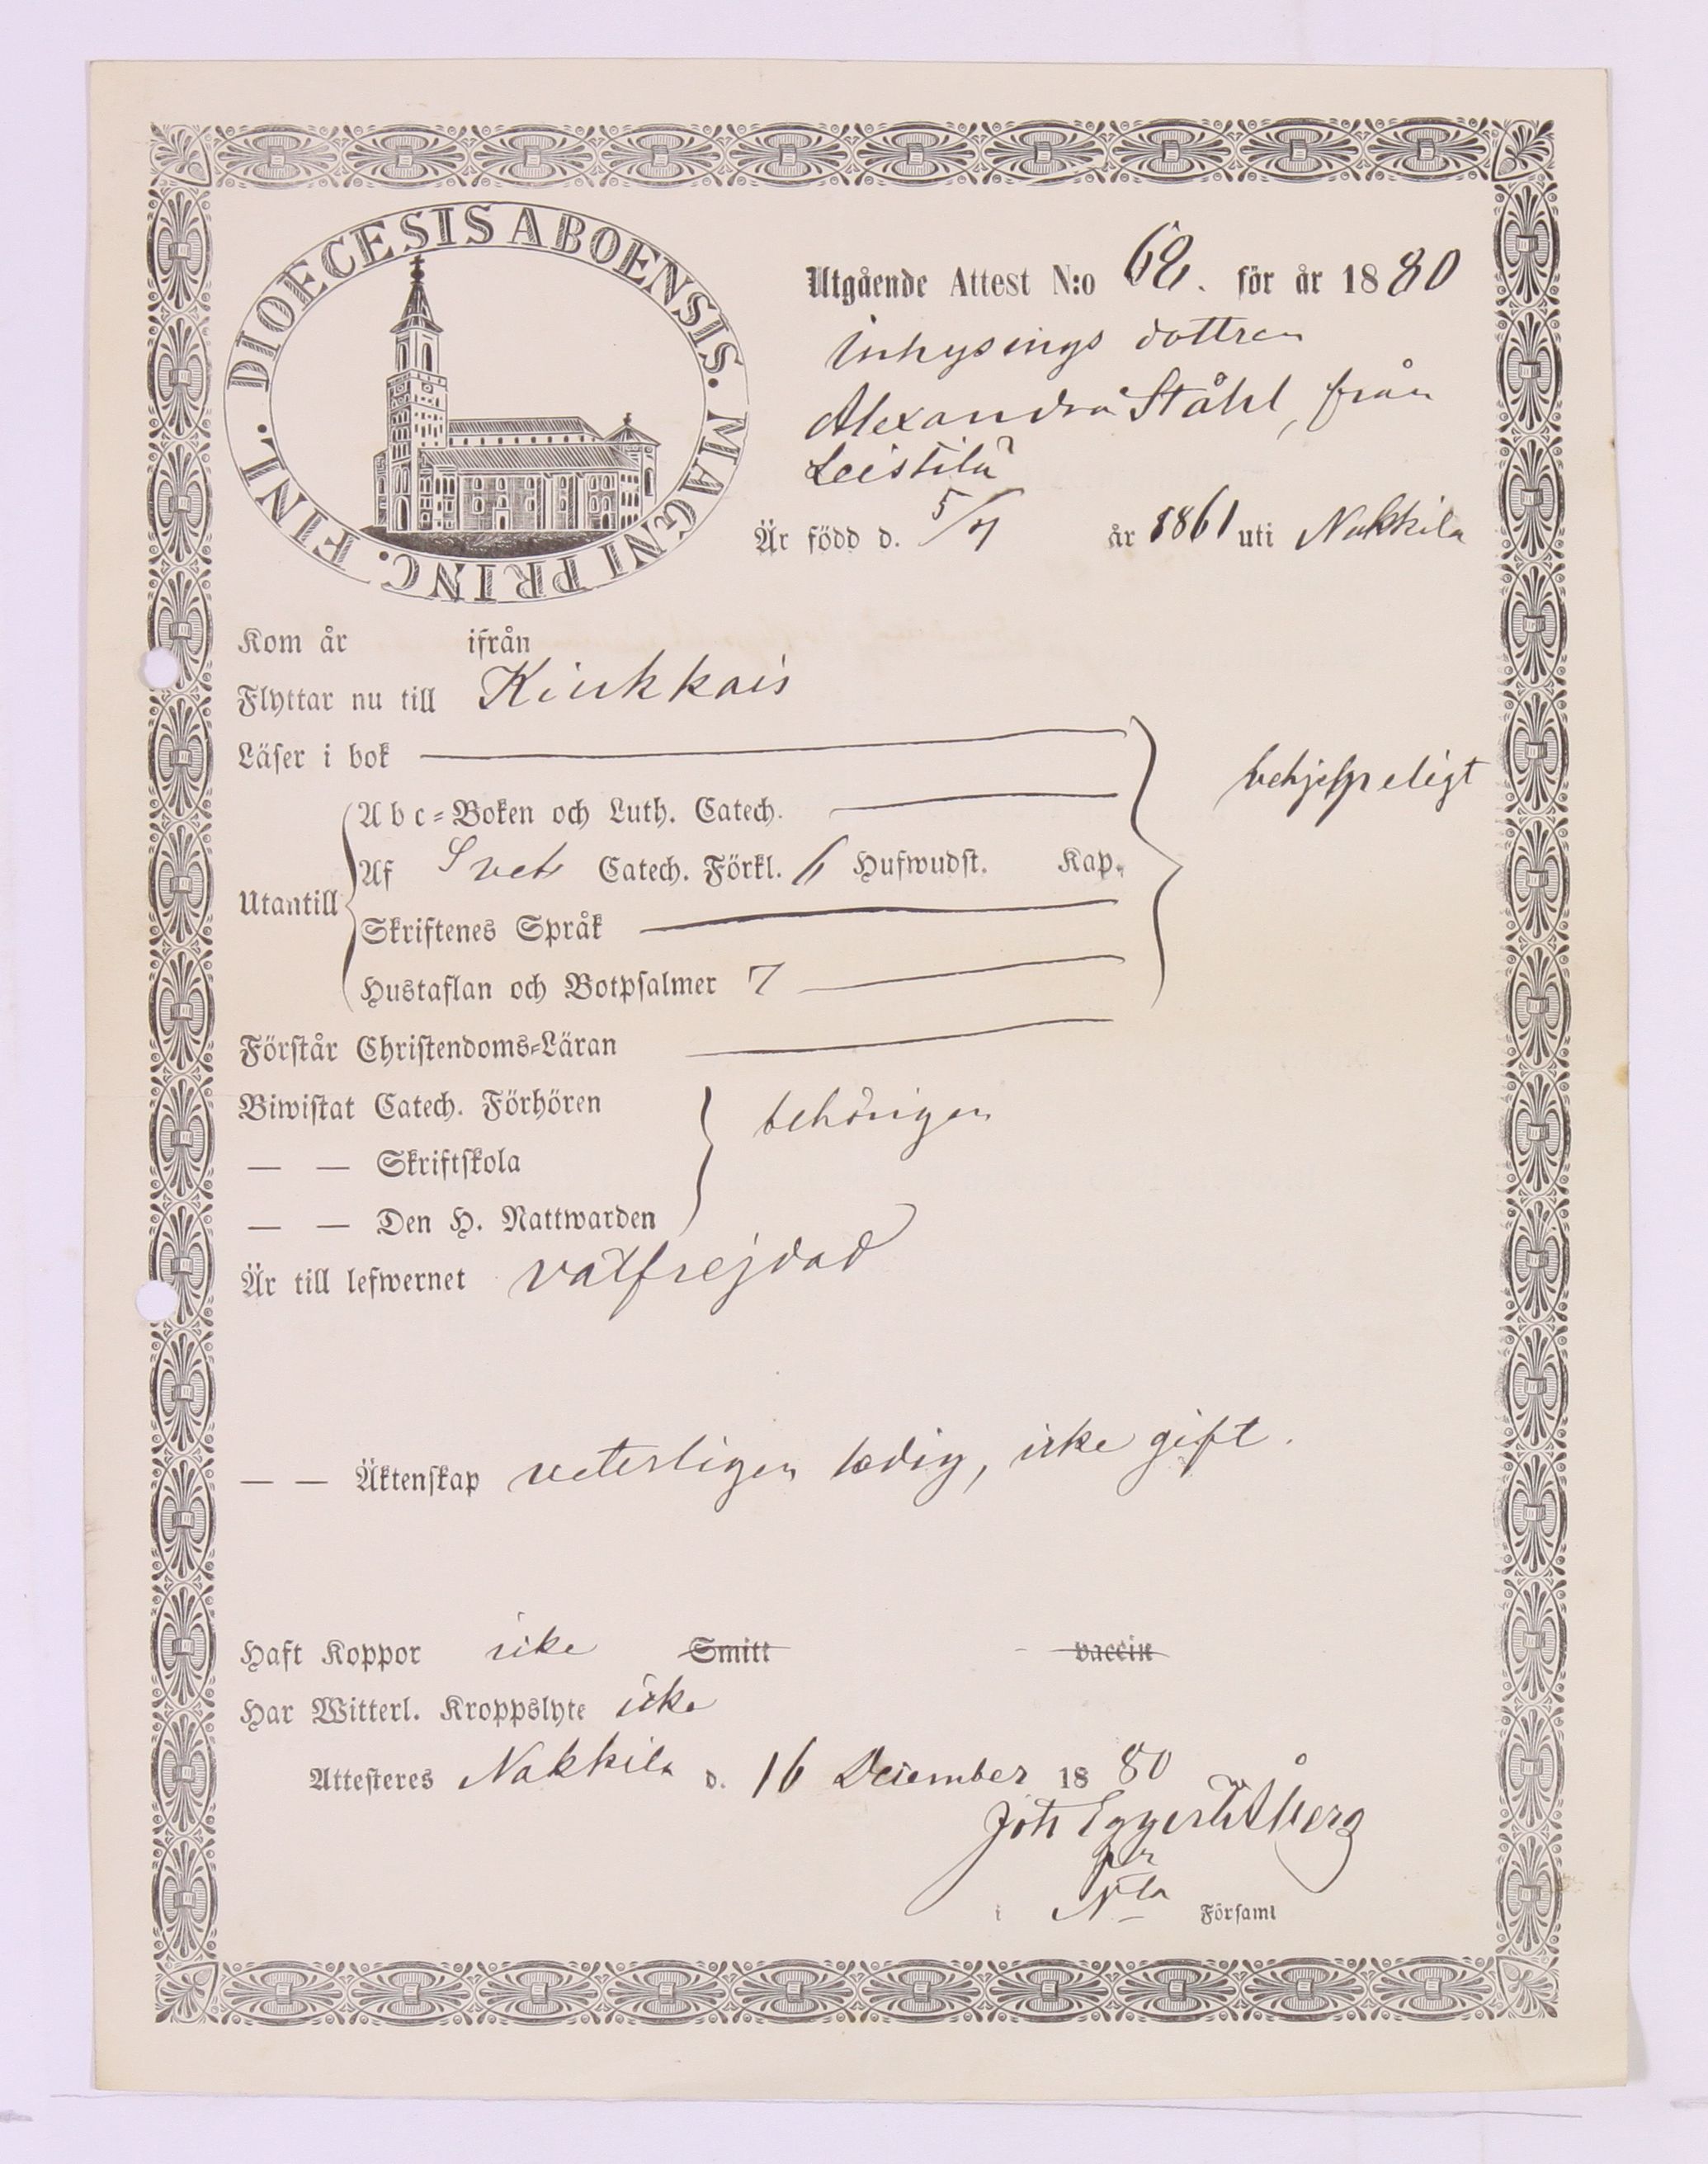 DIOECESIS ABOENSIS. MAGNI PRINC. FINL.
Utgående Attest N:o 62. för år 1880
inhysings dottren
Alexandra Ståhl, från
Leistilä
Är född d. 5/7 år 1861 uti Nakkila
Kom år ifrån
Flyttar nu till Kiukkais
Läser i bok
Abc-Boken och Luth. Catech.
Af Sveb Catech. Förkl. 6 Hufwudst. Kap.
Utantill
Skriftenes Språk
Hustaflan och Botpsalmer 7
hjelpeligt
Förstår Christendoms-Läran
Biwistat Catech. Förhören
— — Skriftskola
— — Den H. Nattwarden
behörigen
Är till lefwernet välfrejdad
— — Äktenskap veterligen ledig, icke gift.
Haft Koppor icke Smitt vaccin
Har Witterl. Kroppslyte icke
Attesteres Nakkila d. 16 December 1880
Joh Eggert Åberg
i N:la Församl